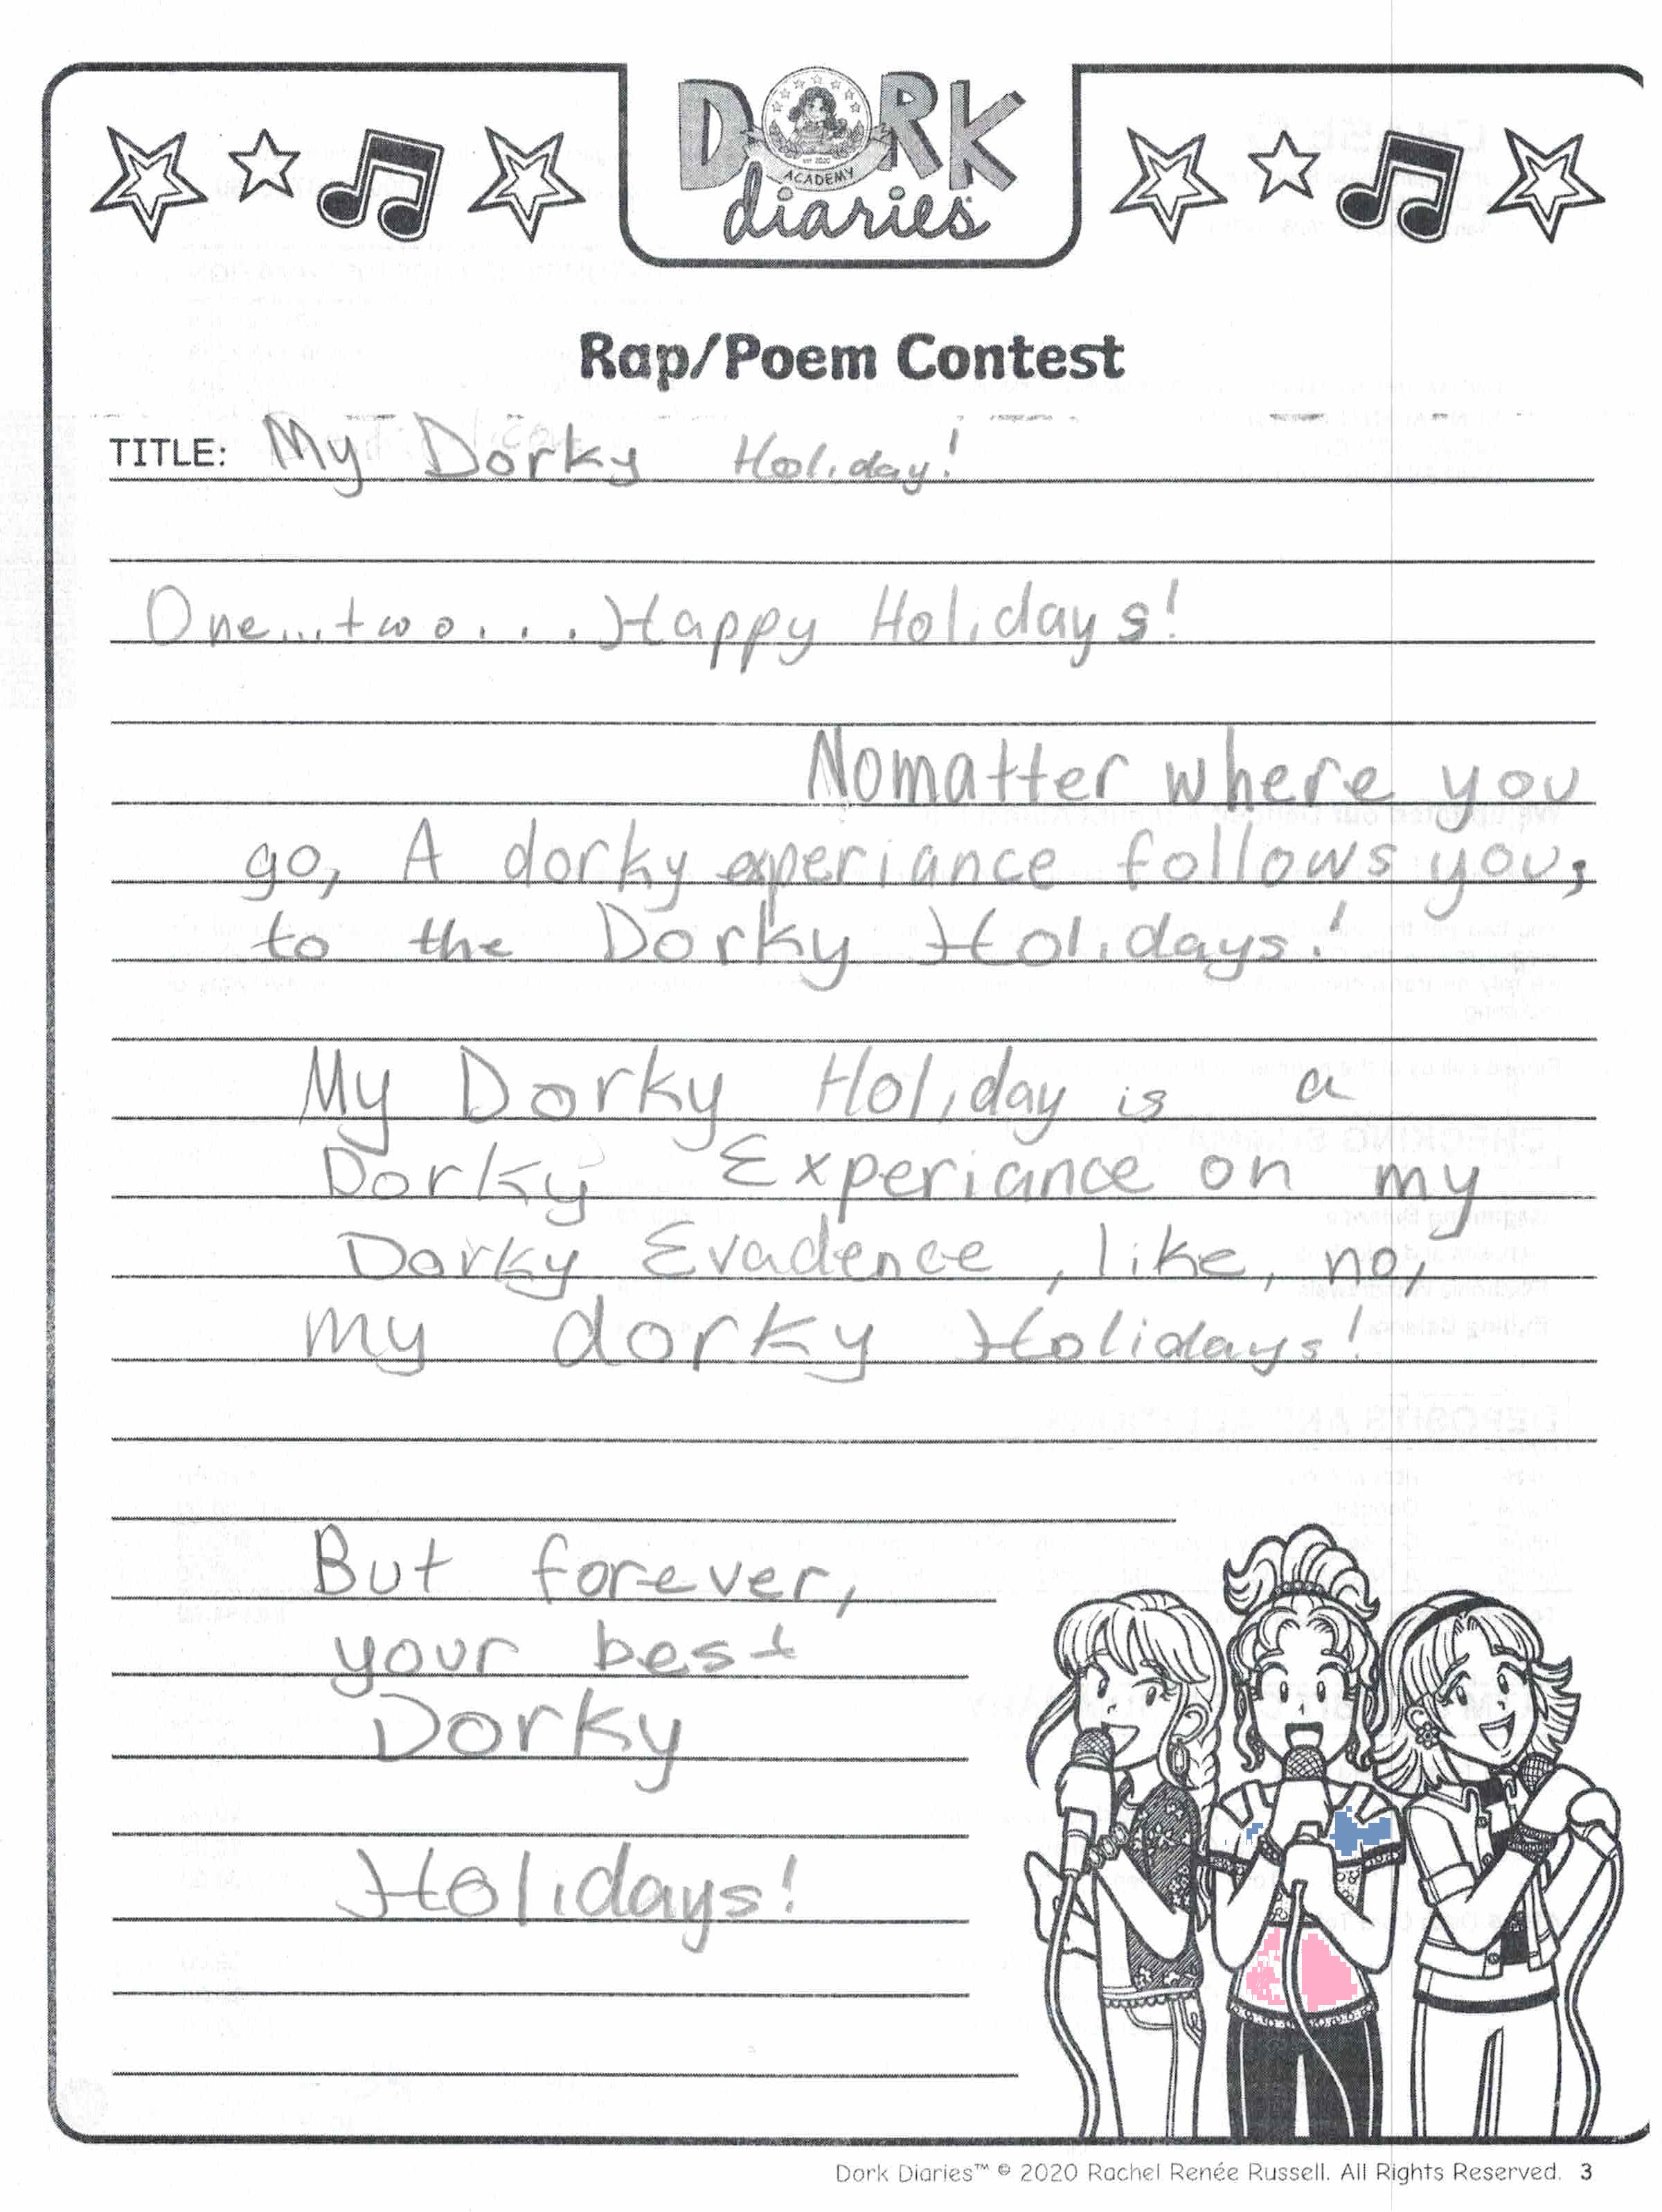 DORK
EST. 2020
ACADEMY
diaries
Rap/Poem Contest
TITLE: My Dorky Holiday!
One...two....Happy Holidays!
Nomatter where you
go, A dorky experiance follows you,
to the Dorky Holidays!
My Dorky Holiday is a
Dorky Experiance on my
Dorky Evadence, like, no,
my dorky Holidays!
But forever,
your best
Dorky
Holidays!
Dork Diaries™ © 2020 Rachel Renée Russell. All Rights Reserved. 3